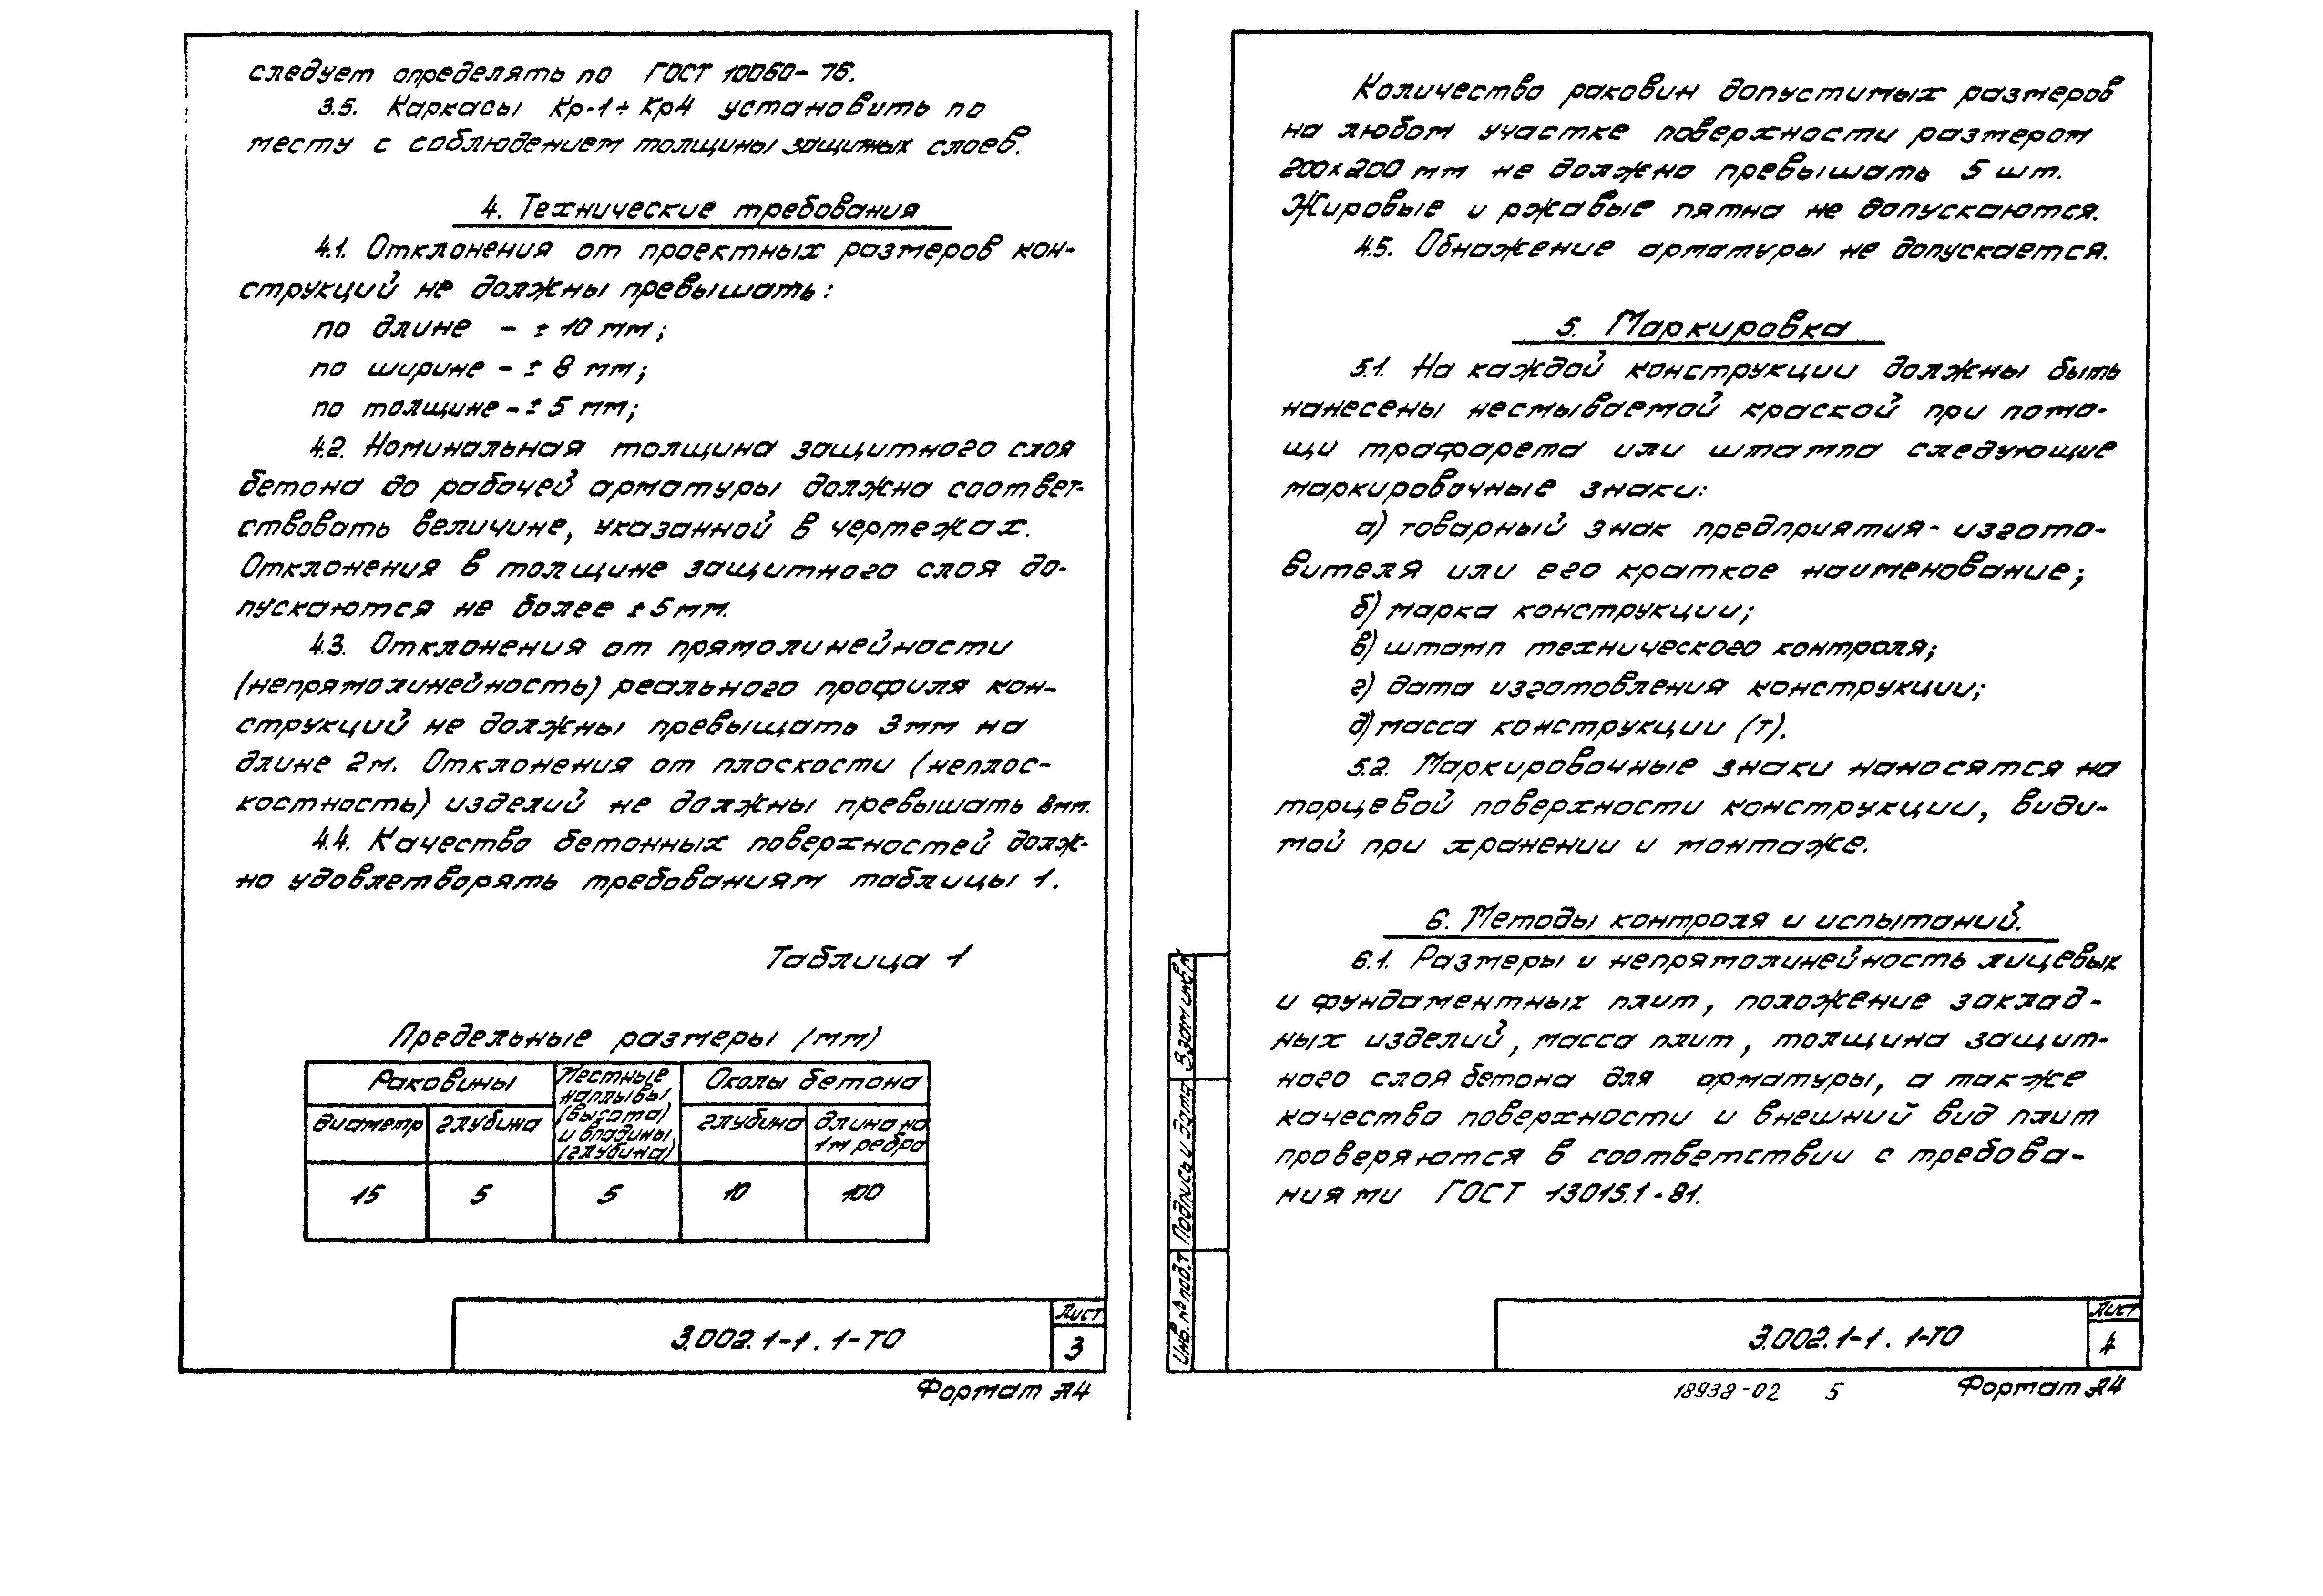 следует определять по ГОСТ 10060-76.
3.5. Каркасы Кр-1÷Кр4 установить по
месту с соблюдением толщины защитных слоев.
4. Технические требования
4.1. Отклонения от проектных размеров кон-
струкций не должны превышать:
по длине - ± 10 мм;
по ширине - ± 8 мм;
по толщине - ± 5 мм;
4.2. Номинальная толщина защитного слоя
бетона до рабочей арматуры должна соответ-
ствовать величине, указанной в чертежах.
Отклонения в толщине защитного слоя до-
пускаются не более ± 5 мм.
4.3. Отклонения от прямолинейности
(непрямолинейность) реального профиля кон-
струкций не должны превыщать 3 мм на
длине 2 м. Отклонения от плоскости (неплос-
костность) изделий не должны превышать 8 мм.
4.4. Качество бетонных поверхностей долж-
но удовлетворять требованиям таблицы 1.
Таблица 1
Предельные размеры (мм)
Раковины
Местные наплывы (высота) и впадины (глубина)
Околы бетона
диаметр
глубина
глубина
длина на 1 м ребра
15
5
5
10
100
3.002.1-1.1-ТО
Лист
3
Формат А4
Количество раковин допустимых размеров
на любом участке поверхности размером
200×200 мм не должно превышать 5 шт.
Жировые и ржавые пятна не допускаются.
4.5. Обнажение арматуры не допускается.
5. Маркировка
5.1. На каждой конструкции должны быть
нанесены несмываемой краской при помо-
щи трафарета или штампа следующие
маркировочные знаки:
а) товарный знак предприятия- изгото-
вителя или его краткое наименование;
б) марка конструкции;
в) штамп технического контроля;
г) дата изготовления конструкции;
д) масса конструкции (т).
5.2. Маркировочные знаки наносятся на
торцевой поверхности конструкции, види-
мой при хранении и монтаже.
6. Методы контроля и испытаний.
6.1. Размеры и непрямолинейность лицевых
и фундаментных плит, положение заклад-
ных изделий, масса плит, толщина защит-
ного слоя бетона для арматуры, а также
качество поверхности и внешний вид плит
проверяются в соответствии с требова-
ниями ГОСТ 13015.1-81.
Взам инв №
Подпись и дата
Инв. № подл
3.002.1-1.1-ТО
Лист
4
18938-02 5
Формат А4